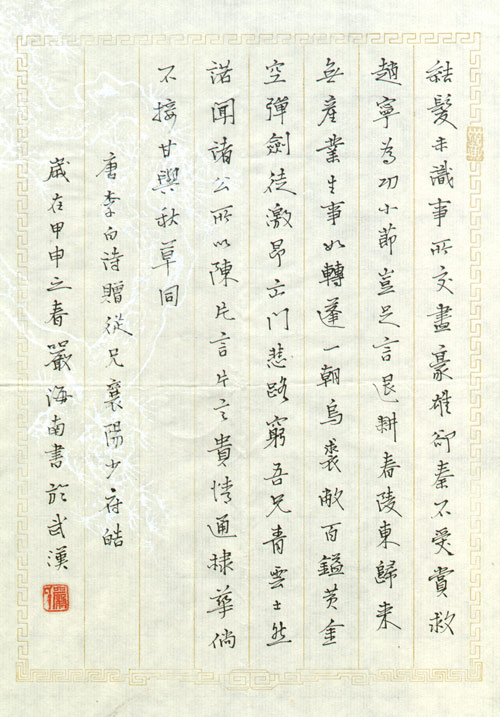 結髮未識事所交盡豪雄卻秦不受賞救
趙寧為功小節豈足言退耕舂陵東歸来
無產業生事如轉蓬一朝烏裘敝百鎰黃金
空彈劍徒激昂出門悲路窮吾兄青雲士然
諾聞諸公所以陳片言片言貴情通棣華倘
不接甘與秋草同
唐李白詩贈從兄襄陽少府皓
歲在甲申之春嚴海南書於武漢